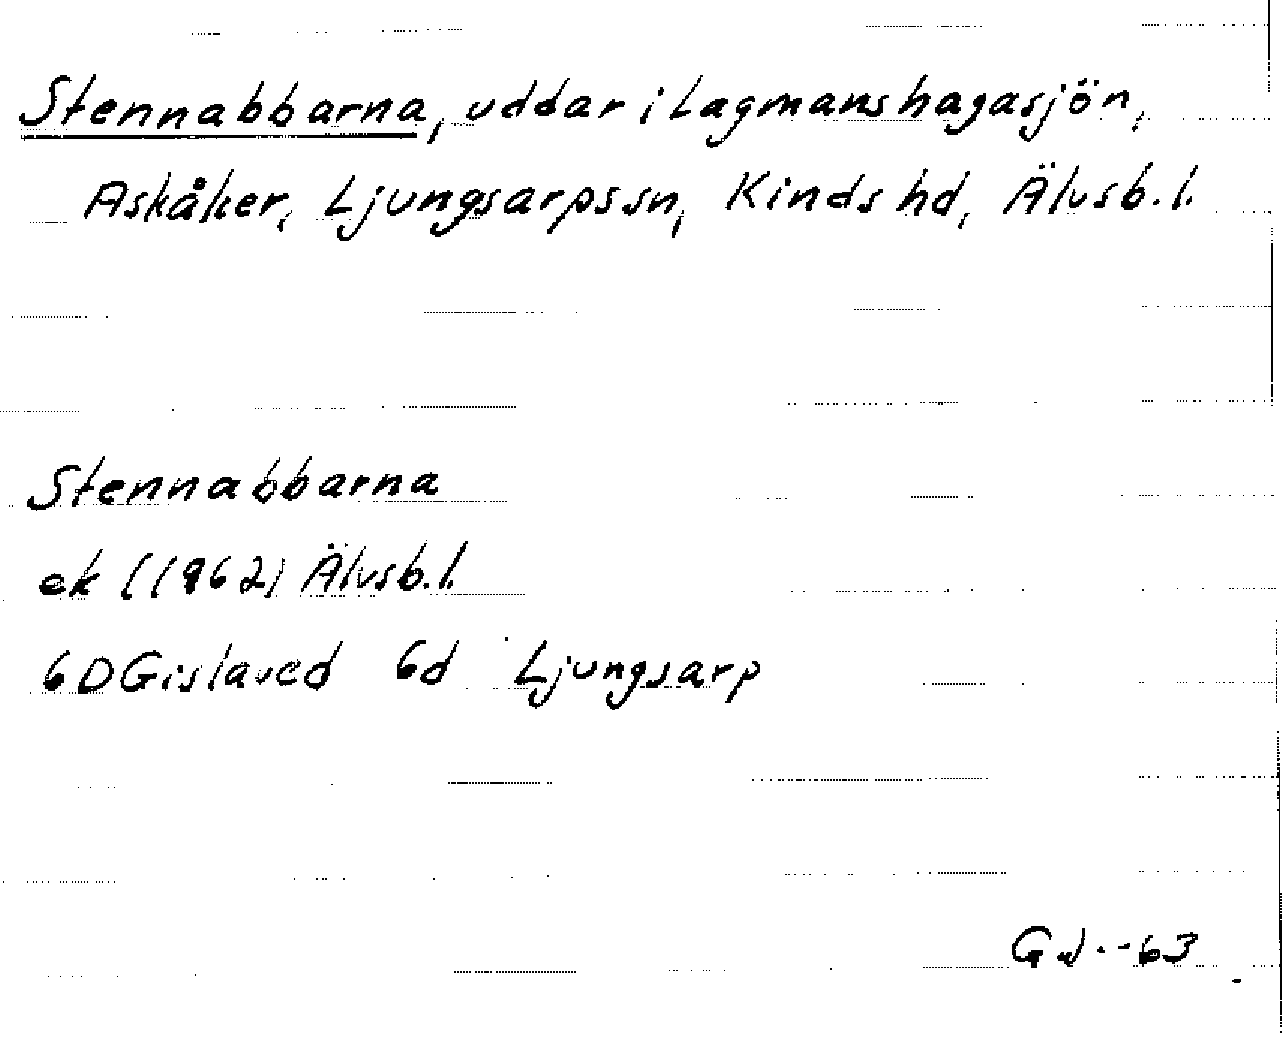 Stennabbarna, uddar i Lagmanshagasjön,
Askåker, Ljungsarps sn, Kinds hd, Älvsb. l.
Stennabbarna
ek (1962) Älvsb. l.
6D Gislaved 6d Ljungsarp
-63